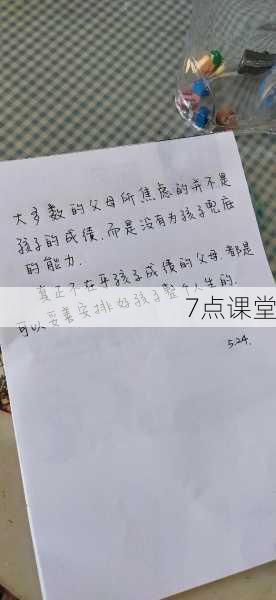 大多数的父母所焦虑的并不是
孩子的成绩.而是没有为孩子兜底
的能力.
真正不在乎孩子成绩的父母.都是
可以妥善安排好孩子整个人生的.
7点课堂
5.24.